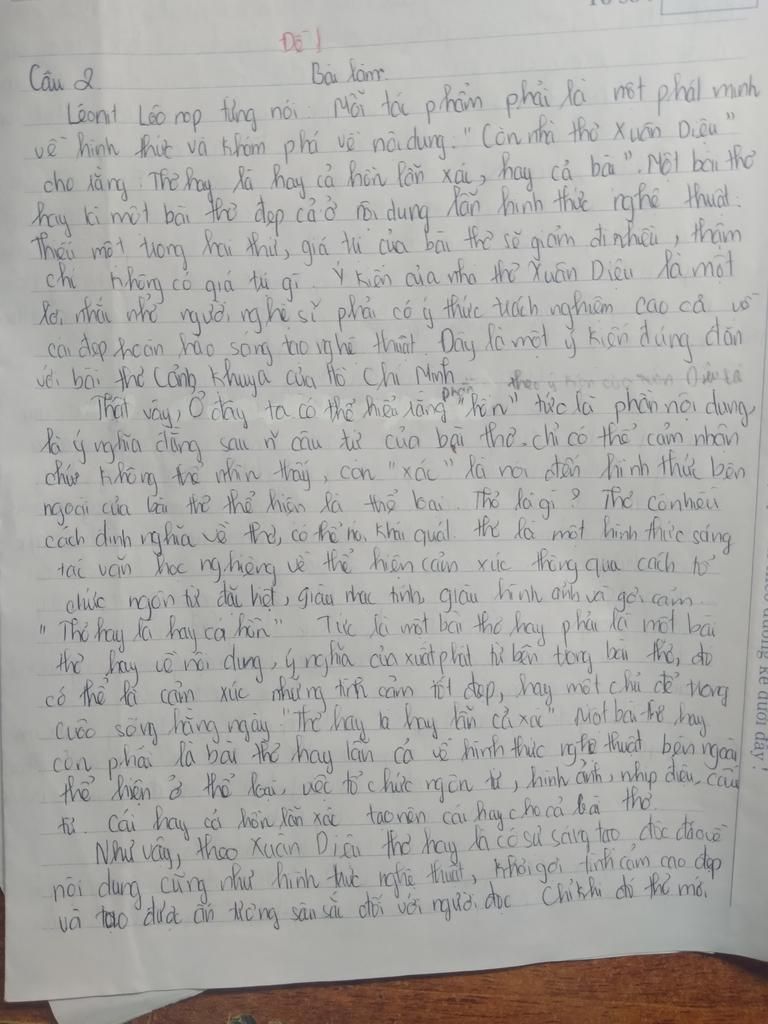 Đề 1
Câu 2 Bài làm
Lêonit Lêônop từng nói: Mỗi tác phẩm phải là một phát minh
về hình thức và khám phá về nội dung." Còn nhà thơ Xuân Diệu"
cho rằng: Thơ hay là hay cả hồn lẫn xác, hay cả bài". Một bài thơ
hay là một bài thơ đẹp cả ở nội dung lẫn hình thức nghệ thuật.
Thiếu một trong hai thứ, giá trị của bài thơ sẽ giảm đi nhiều, thậm
chí không có giá trị gì. Ý kiến của nhà thơ Xuân Diệu là một
lời nhắc nhở người nghệ sĩ phải có ý thức trách nghiệm cao cả về
cái đẹp hoàn hảo sáng tạo nghệ thuật. Đây là một ý kiến đúng đắn
với bài thơ Cảnh khuya của Hồ Chí Minh.
Thật vậy, Ở đây ta có thể hiểu rằng phần "hồn" tức là phần nội dung,
là ý nghĩa đằng sau câu từ của bài thơ. chỉ có thể cảm nhận
chứ không thể nhìn thấy, còn "xác" là nói đến hình thức bên
ngoài của bài thơ thể hiện là thể loại. Thơ là gì? Thơ có nhiều
cách định nghĩa về thơ, có thể nói khái quát thơ là một hình thức sáng
tác văn học nghiêng về thể hiện cảm xúc thông qua cách tổ
chức ngôn từ đặc biệt, giàu nhạc tính giàu hình ảnh và gợi cảm.
"Thơ hay là hay cả hồn" Tức là một bài thơ hay phải là một bài
thơ hay về nội dung, ý nghĩa của xuất phát từ bên trong bài thơ, đó
có thể là cảm xúc những tình cảm tốt đẹp, hay một chủ đề trong
cuộc sống hằng ngày "Thơ hay là hay lẫn cả xác" Một bài thơ hay
còn phải là bài thơ hay lẫn cả về hình thức nghệ thuật bên ngoài
thể hiện ở thể loại, việc tổ chức ngôn từ, hình ảnh, nhịp điệu, cấu
tứ. Cái hay cả hồn lẫn xác tạo nên cái hay cho cả bài thơ.
Như vậy, theo Xuân Diệu thơ hay là có sự sáng tạo, độc đáo về
nội dung cũng như hình thức nghệ thuật, khơi gợi tình cảm cao đẹp
và tạo được ấn tượng sâu sắc đối với người đọc Chỉ khi đó thơ mới